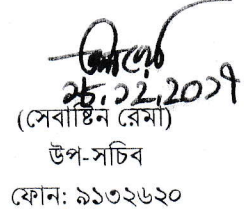 ২৮.১২.২০১৭
(সেবাষ্টিন রেমা)
উপ-সচিব
ফোন: ৯১৩২৬২০